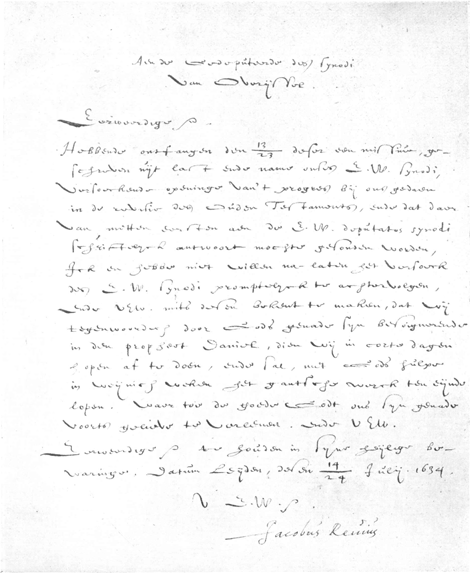 Aen de Gedeputeerde des Synodi
van Overijssel.
Eerwerdige
Hebbende ontfangen den 13/23 deser een missive, ge-
schreven uijt last ende name onses E. W. Synodi,
versoeckende openinge van't progres bij ons gedaen
in de revisie des Ouden Testaments, ende dat daer
van metten eersten aen de E. W. deputatos synodi
schriftelyck antwoort mochte gesonden worden,
Ick en hebbe niet willen na-laten het versoeck
des E. W. Synodi promptelyck te achtervolgen,
ende UEW. mits desen bekent te maken, dat wij
tegenwoordich door Gods genade syn besoignerende
in den propheet Daniel, dien wij in corte dagen
hopen af te doen, ende sal, met Gods hulpe
in weijnich weken het gantsche werck ten eijnde
lopen. Waer toe de goede Godt ons syn genade
voorts gelieve te verlenen. ende UEW.
Eerwerdige te houden in syne heylige be-
waringe. Datum Leyden, desen 14/24 Julij. 1634.
U E. W.
Jacobus Revius